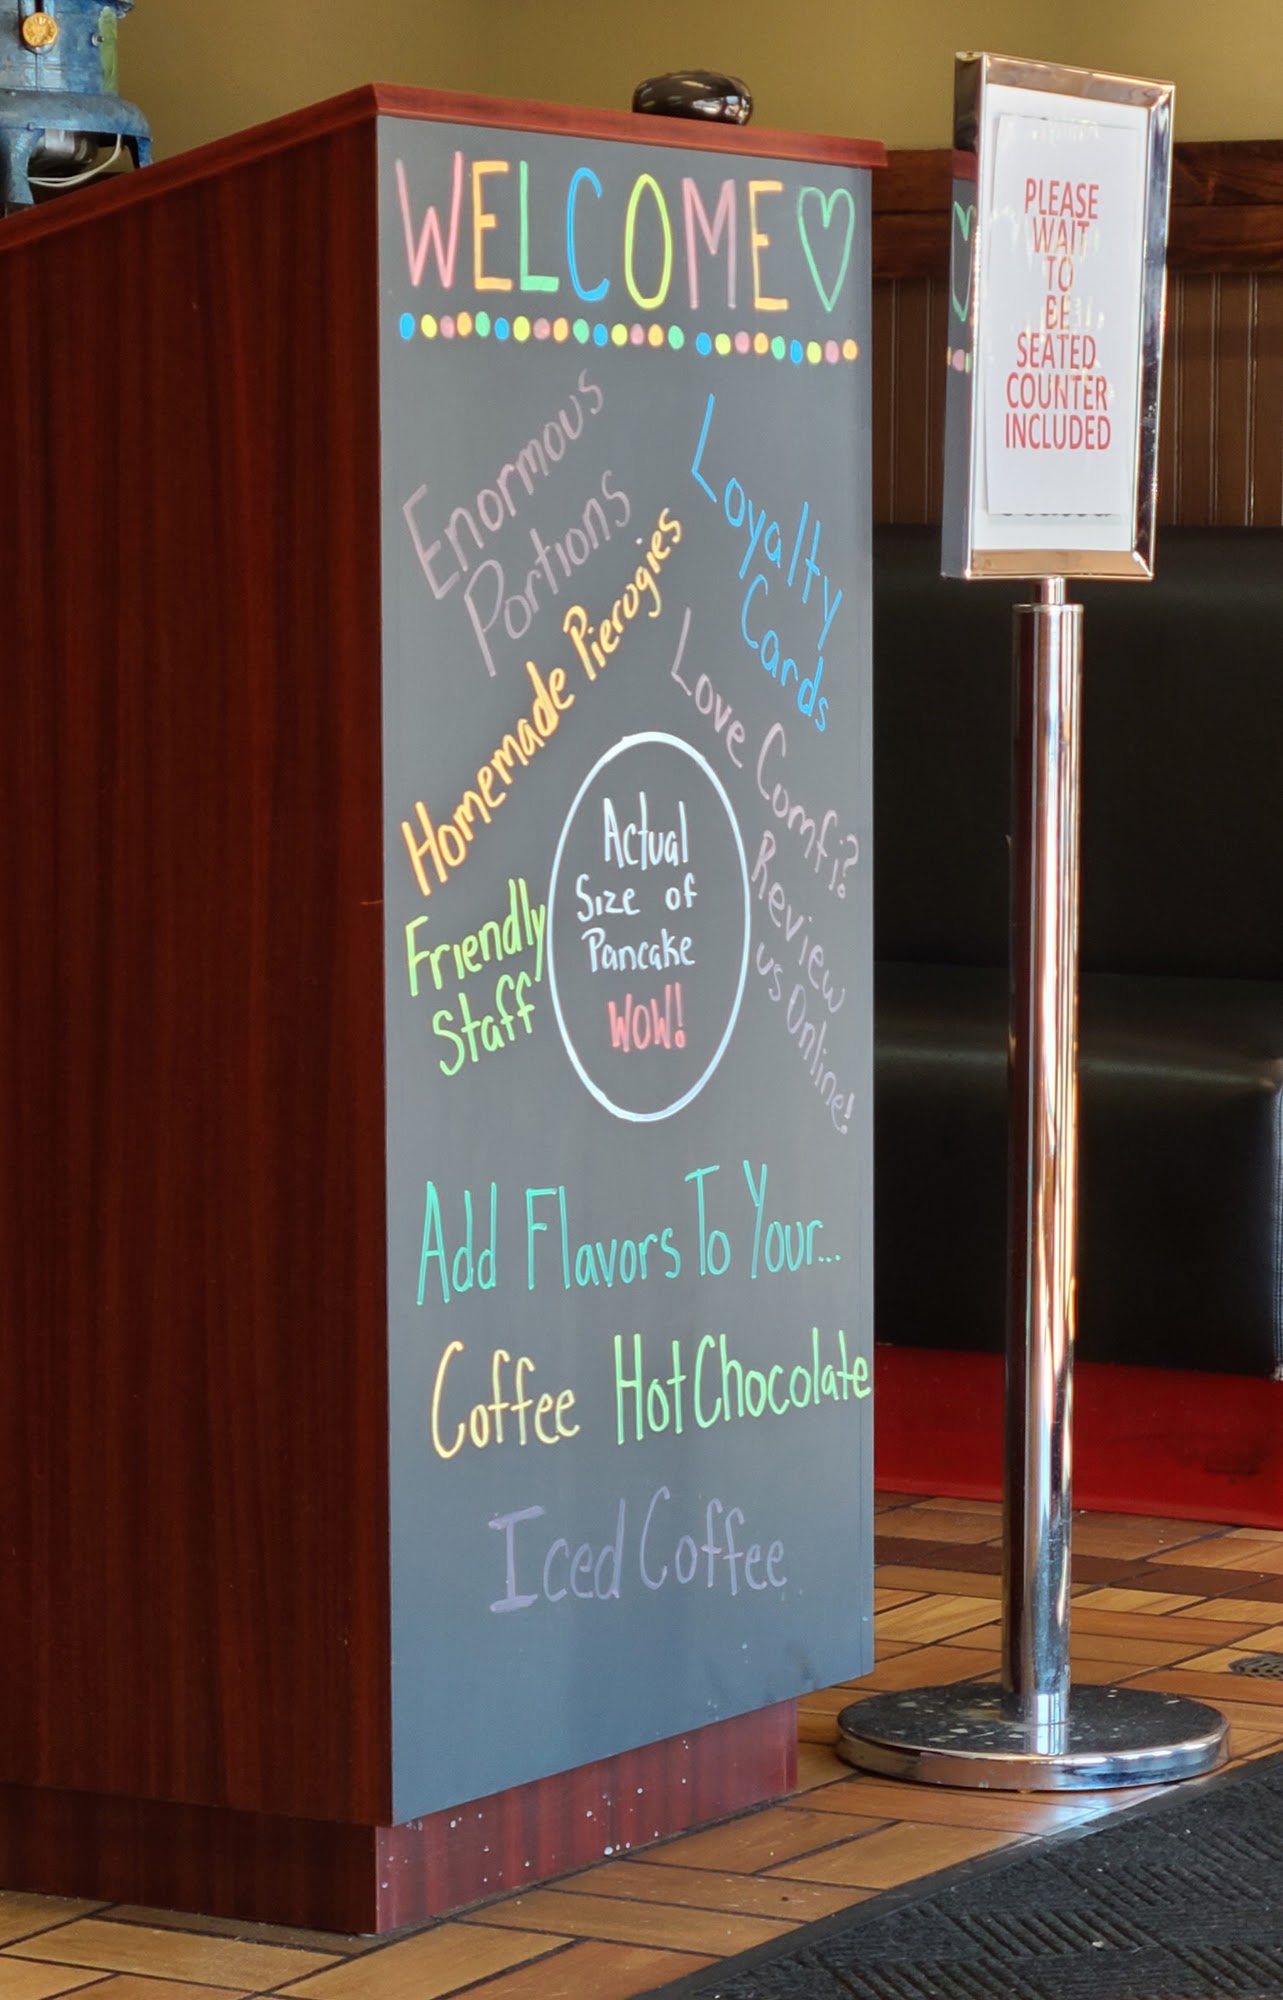 WELCOME
Enormous
Portions
Homemade Pierogies
Friendly
Staff
Loyalty
Cards
Love Comfi?
Review
us Online!
Actual
Size of
Pancake
WOW!
Add Flavors To Your...
Coffee Hot Chocolate
Iced Coffee
PLEASE
WAIT
TO
BE
SEATED
COUNTER
INCLUDED